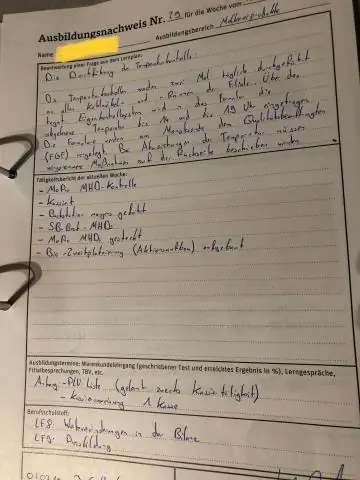 Ausbildungsnachweis Nr. 79 für die Woche vom
Name: Ausbildungsbereich: Molkereiprodukte
Beantwortung einer Frage aus dem Lernplan:
Die Durchführung der Temperaturkontrolle:
Die Temperaturkontrollen werden zwei Mal täglich durchgeführt
in allen Kühlmöbeln und -Räumen der Filiale. Über das
wird in das Formular die
abgelesene Temperatur bis 10 und bis 19 Uhr eingetragen.
Die Formulare werden am des Qualitätsbeauftragten
(FGF) Bei Abweichungen der Temperatur müssen
Maßnahmen auf der Rückseite beschrieben werden.
Tätigkeitsbericht der aktuellen Woche:
- MoPro MHD-Kontrolle
- Kassiert
- Bestellung
- SB-Brot MHD:
- MoPro MHD: gecheckt
- Bio-Zweitplatzierung (Aktionsaufbau) aufgebaut
Ausbildungstermine: Warenkundelehrgang (geschriebener Test und erreichtes Ergebnis in %), Lerngespräche,
Filialbesprechungen, TBV, etc.
-PLU Liste (gelernt zwecks Kassiertätigkeit)
- Kasseneinweisung 1 Kasse
Berufsschulstoff:
LF8: Wertveränderungen in der Bilanz
LF9: Ausbildung